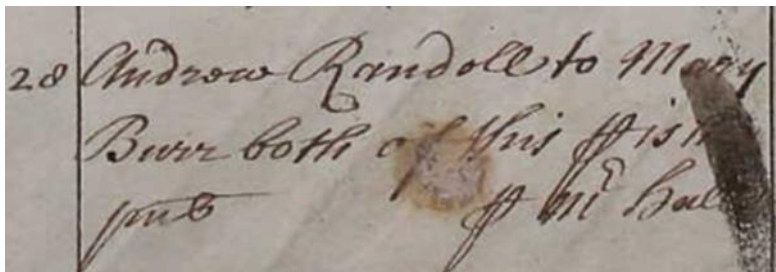 28 Andrew Randoll to Mary
Burr both of this
pub p Mr Hall